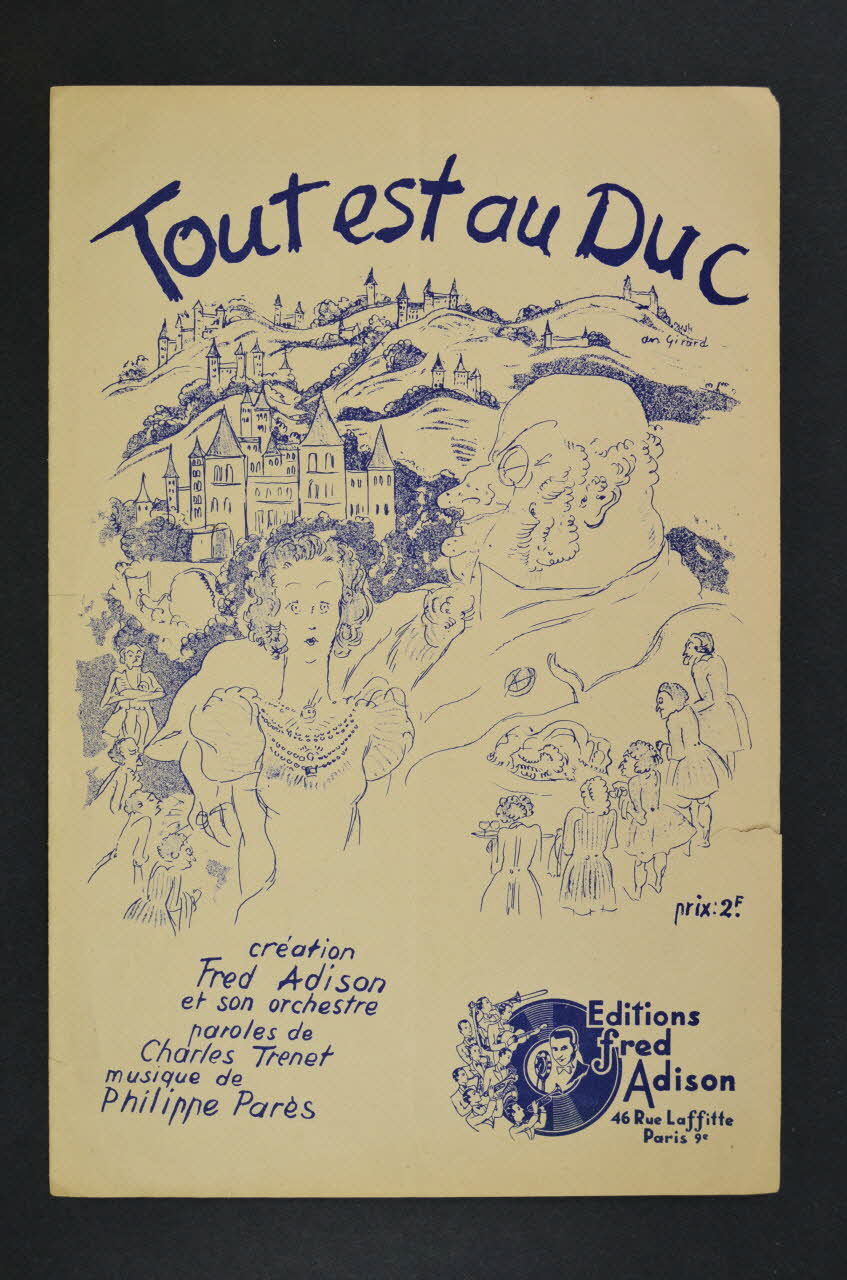 Tout est au Duc
an Girard
prix: 2F.
création
Fred Adison
et son orchestre
paroles de
Charles Trenet
musique de
Philippe Parès
Editions
fred
Adison
46 Rue Laffitte
Paris 9e